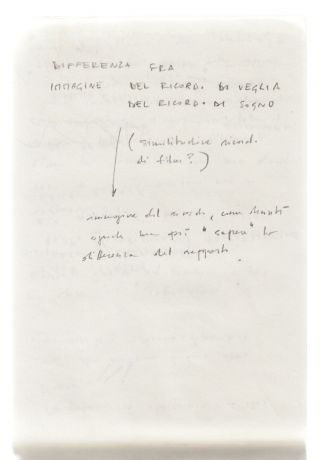 DIFFERENZA FRA
IMMAGINE DEL RICORD. DI VEGLIA
DEL RICORD. DI SOGNO
(similitudine ricordi
di film?)
immagine del ricordo, come
uguale ma poi "sapere" la
differenza del rapporto.